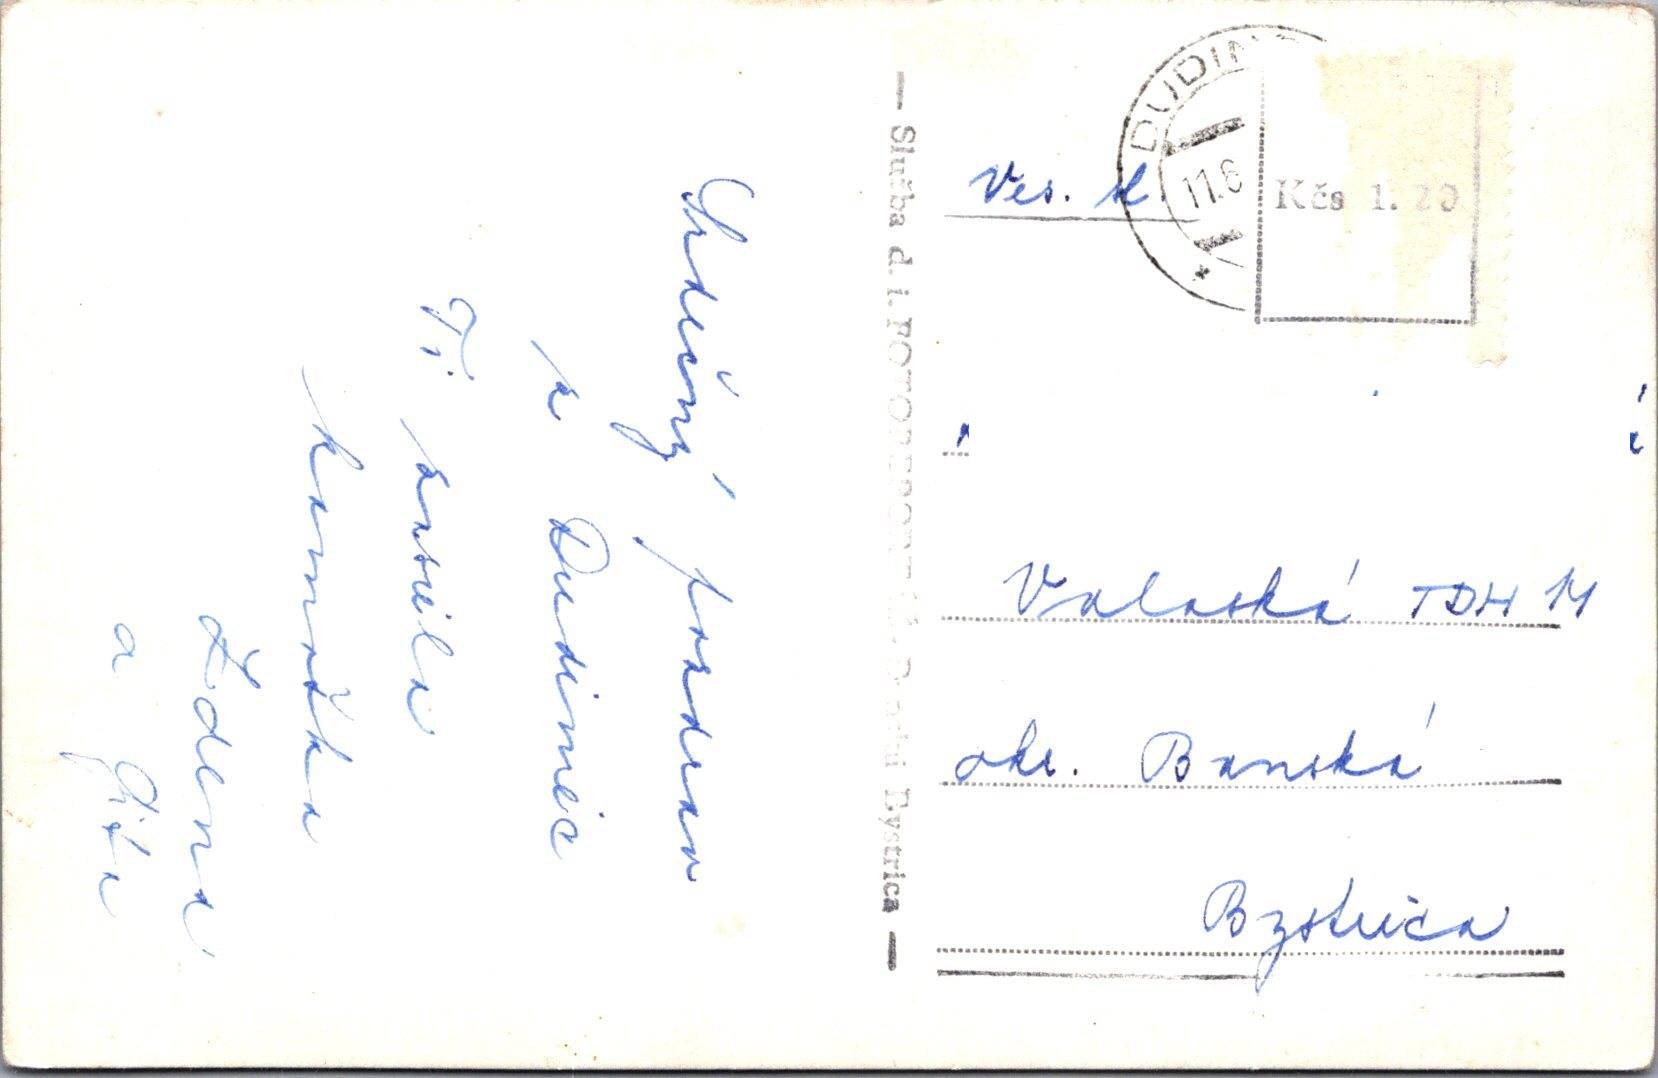 Srdečný pozdrav
z Dudiniec
Ti zasiela
kamoška
Zdena
a Gita
— Služba d. i. FOTO Bystrica —
DUDIN
11.6
Kčs 1. 20
Ves.
Valaská TDH 11
okr. Banská
Bystrica